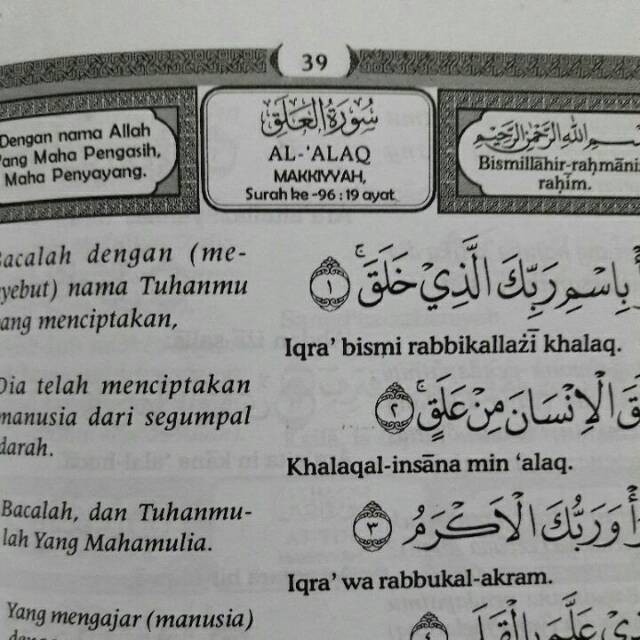 39
Dengan nama Allah
Yang Maha Pengasih,
Maha Penyayang.
سُورَةُ الْعَلَقِ
AL-‘ALAQ
MAKKIYYAH,
Surah ke -96 : 19 ayat
بِسْمِ اللهِ الرَّحْمٰنِ الرَّحِيْمِ
Bismillāhir-raḥmānir-
raḥīm.
Bacalah dengan (me-
nyebut) nama Tuhanmu
yang menciptakan,
بِاسْمِ رَبِّكَ الَّذِيْ خَلَقَۚ ١
Iqra’ bismi rabbikallażī khalaq.
Dia telah menciptakan
manusia dari segumpal
darah.
الْاِنْسَانَ مِنْ عَلَقٍۚ ٢
Khalaqal-insāna min ‘alaq.
Bacalah, dan Tuhanmu-
lah Yang Mahamulia.
وَرَبُّكَ الْاَكْرَمُ ٣
Iqra’ wa rabbukal-akram.
Yang mengajar (manusia)
عَلَّمَ بِالْقَلَمِ ٤